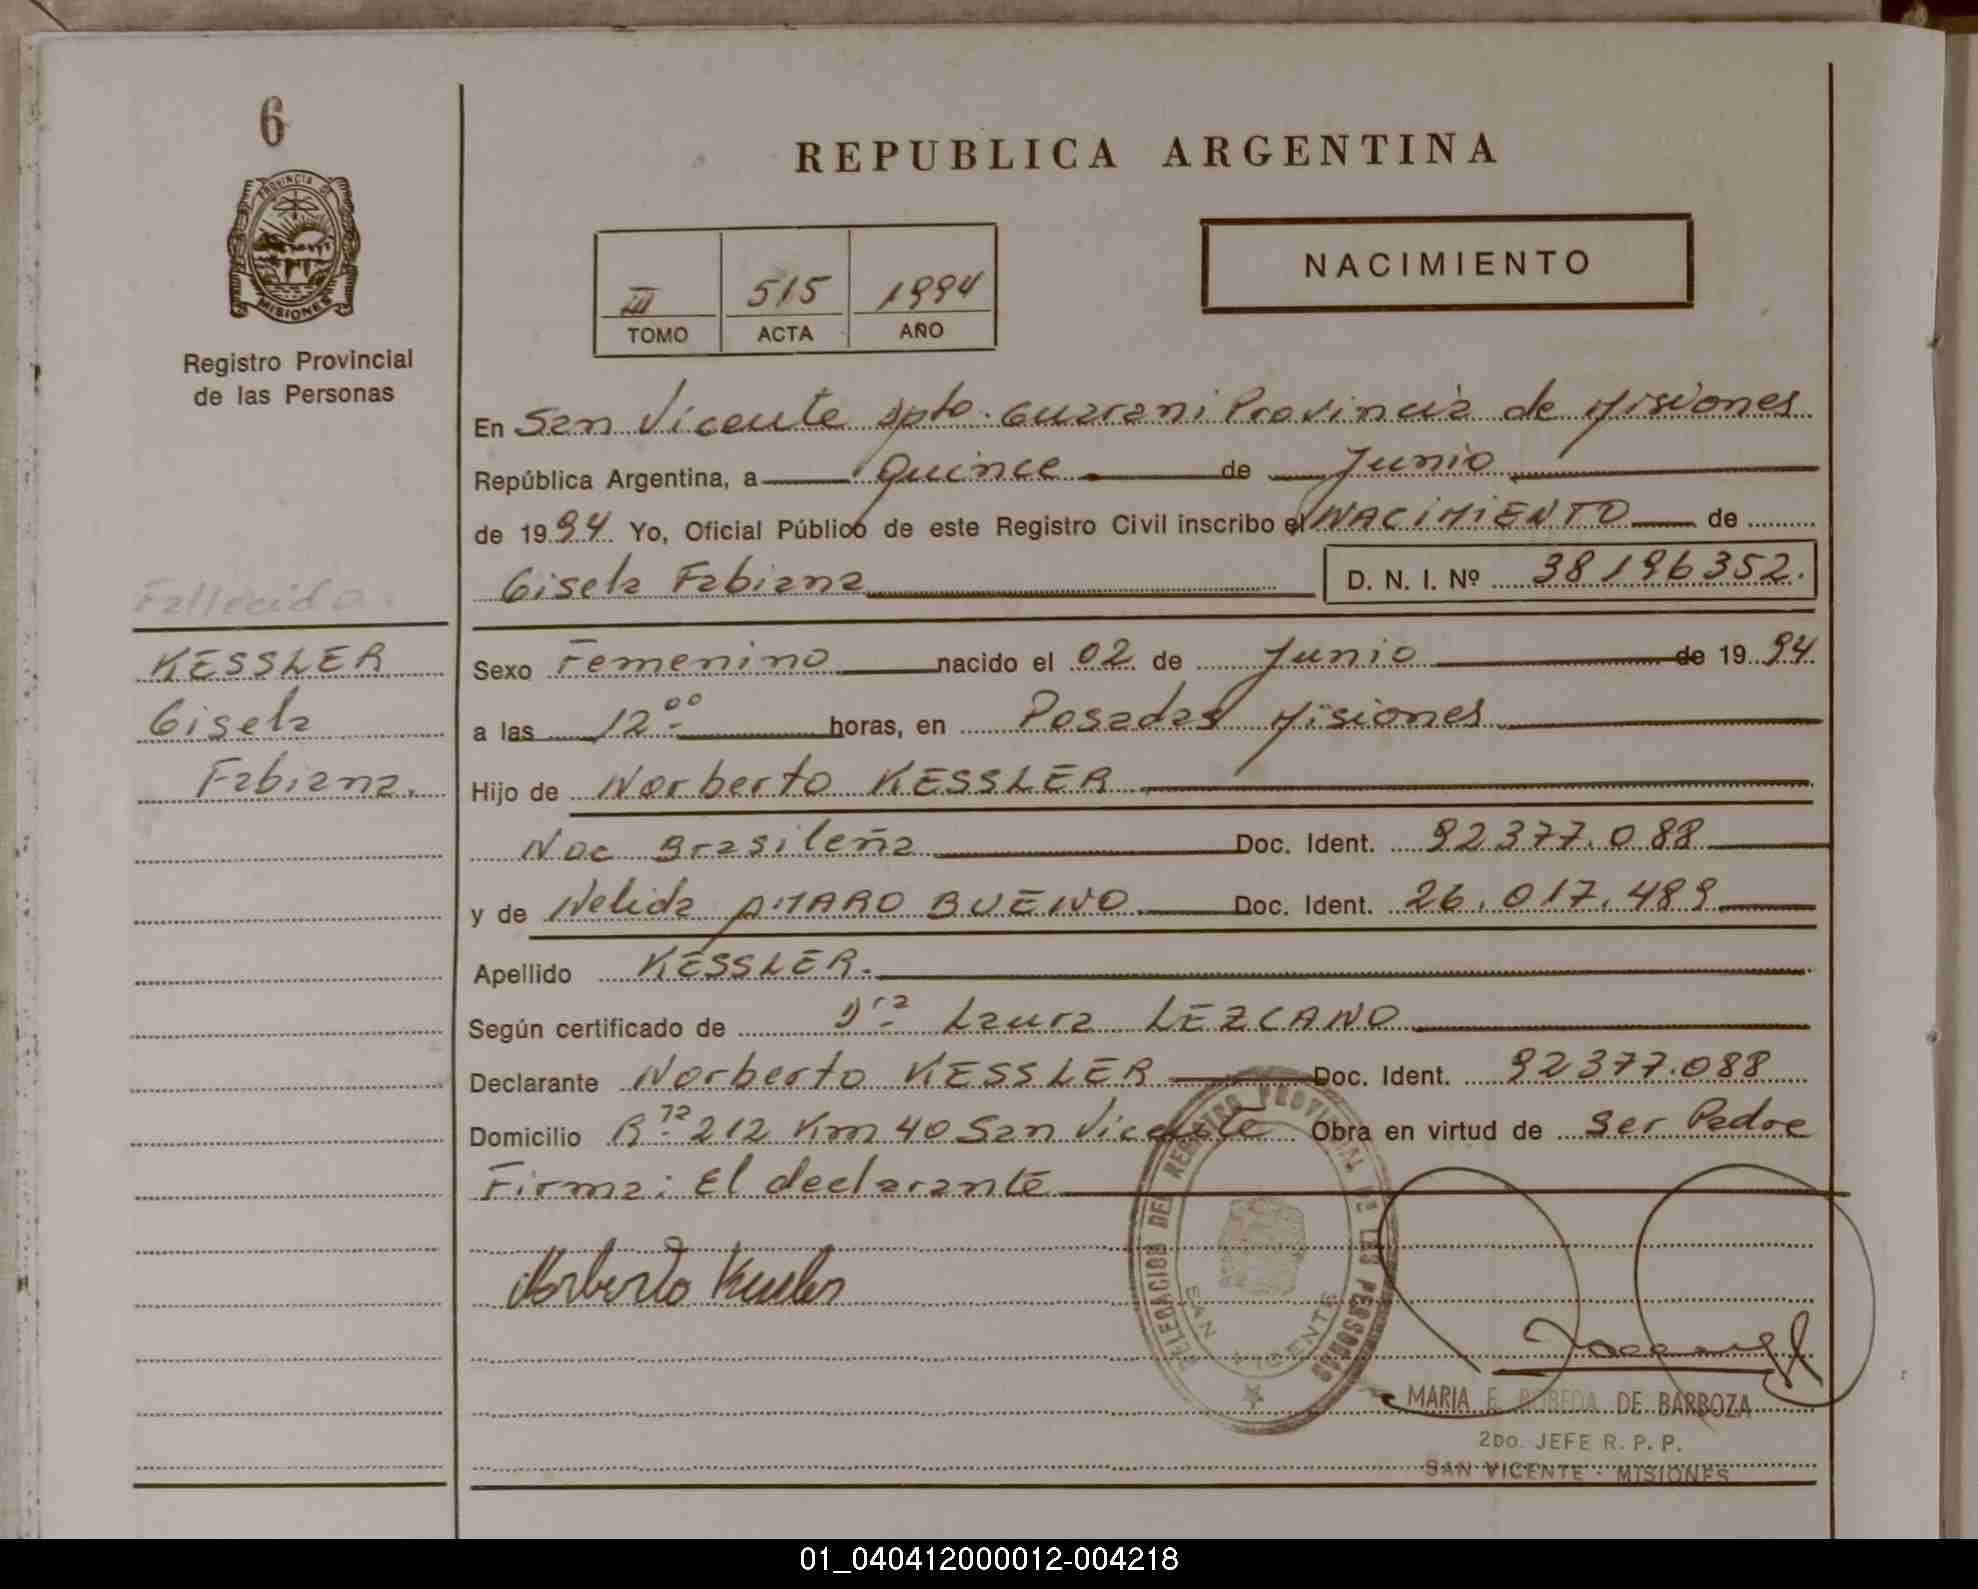 6
PROVINCIA DE
MISIONES
Registro Provincial
de las Personas
REPUBLICA ARGENTINA
NACIMIENTO
III 515 1994
TOMO ACTA AÑO
En San Vicente Dpto. Guarani Provincia de Misiones
República Argentina, a Quince de Junio
de 1994 Yo, Oficial Público de este Registro Civil inscribo el NACIMIENTO de
Gisela Fabiana D. N. I. Nº 38196352.
Fallecida.
KESSLER
Gisela
Fabiana.
Sexo Femenino nacido el 02 de Junio de 1994
a las 12 00 horas, en Posadas Misiones
Hijo de Norberto KESSLER
Nac Brasileña Doc. Ident. 92377.088
y de Nelida AMARO BUENO Doc. Ident. 26.017.489
Apellido KESSLER.
Según certificado de Dra Laura LEZCANO
Declarante Norberto KESSLER Doc. Ident. 92377.088
Domicilio Rta 212 Km 40 San Vicente Obra en virtud de Ser Padre
Firma: El declarante
Norberto Kessler
DELEGACION DEL REGISTRO PROVINCIAL DE LAS PERSONAS
SAN VICENTE
MARIA E. DE BARBOZA
2DO. JEFE R. P. P.
SAN VICENTE - MISIONES
01_040412000012-004218